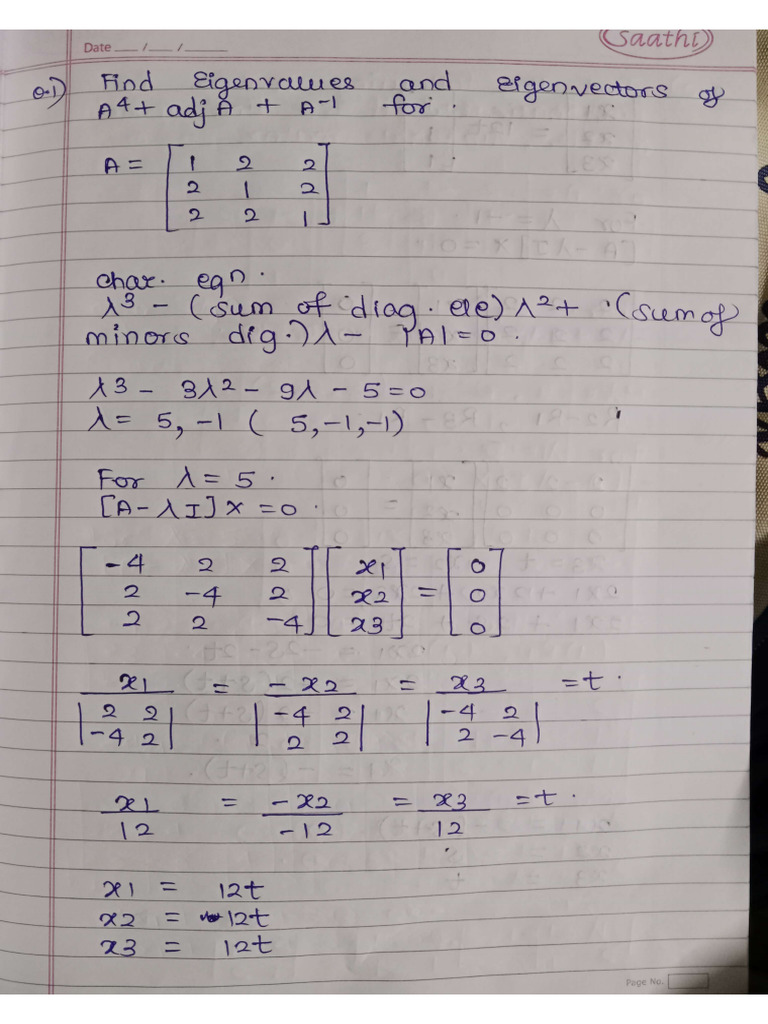 Saathi
Date ___/___/______
Q.1) Find Eigenvalues and eigenvectors of
A⁴ + adj A + A⁻¹ for.
A = [1 2 2
2 1 2
2 2 1]
char. eqn.
λ³ - (sum of diag. ele) λ² + (sum of
minors dig.) λ - |A| = 0.
λ³ - 3λ² - 9λ - 5 = 0
λ = 5, -1 ( 5, -1, -1)
For λ = 5.
[A - λI] x = 0.
[-4 2 2] [x1] = [0]
[2 -4 2] [x2] = [0]
[2 2 -4] [x3] = [0]
x1 / |2 2; -4 2| = -x2 / |-4 2; 2 2| = x3 / |-4 2; 2 -4| = t.
x1 / 12 = -x2 / -12 = x3 / 12 = t.
x1 = 12t
x2 = 12t
x3 = 12t
Page No.